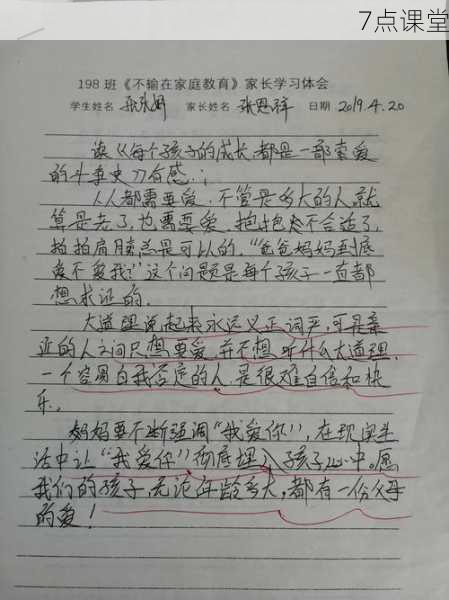 7点课堂
198 班《不输在家庭教育》家长学习体会
学生姓名 家长姓名 张恩祥 日期 2019.4.20
读《每个孩子的成长,都是一部索爱
的斗争史》有感:
人人都需要爱.不管是多大的人,就
算是老了,也需要爱,抱抱不合适了,
拍拍肩膀总是可以的."爸爸妈妈到底
爱不爱我?"这个问题是每个孩子一直都
想求证的.
大道理说起来永远义正词严,可是亲
近的人之间只想要爱,并不想听什么大道理.
一个容易自我否定的人,是很难自信和快
乐。
妈妈要不断强调"我爱你",在现实生
活中让"我爱你"彻底埋入孩子心中。愿
我们的孩子,无论年龄多大,都有一份父母
的爱!